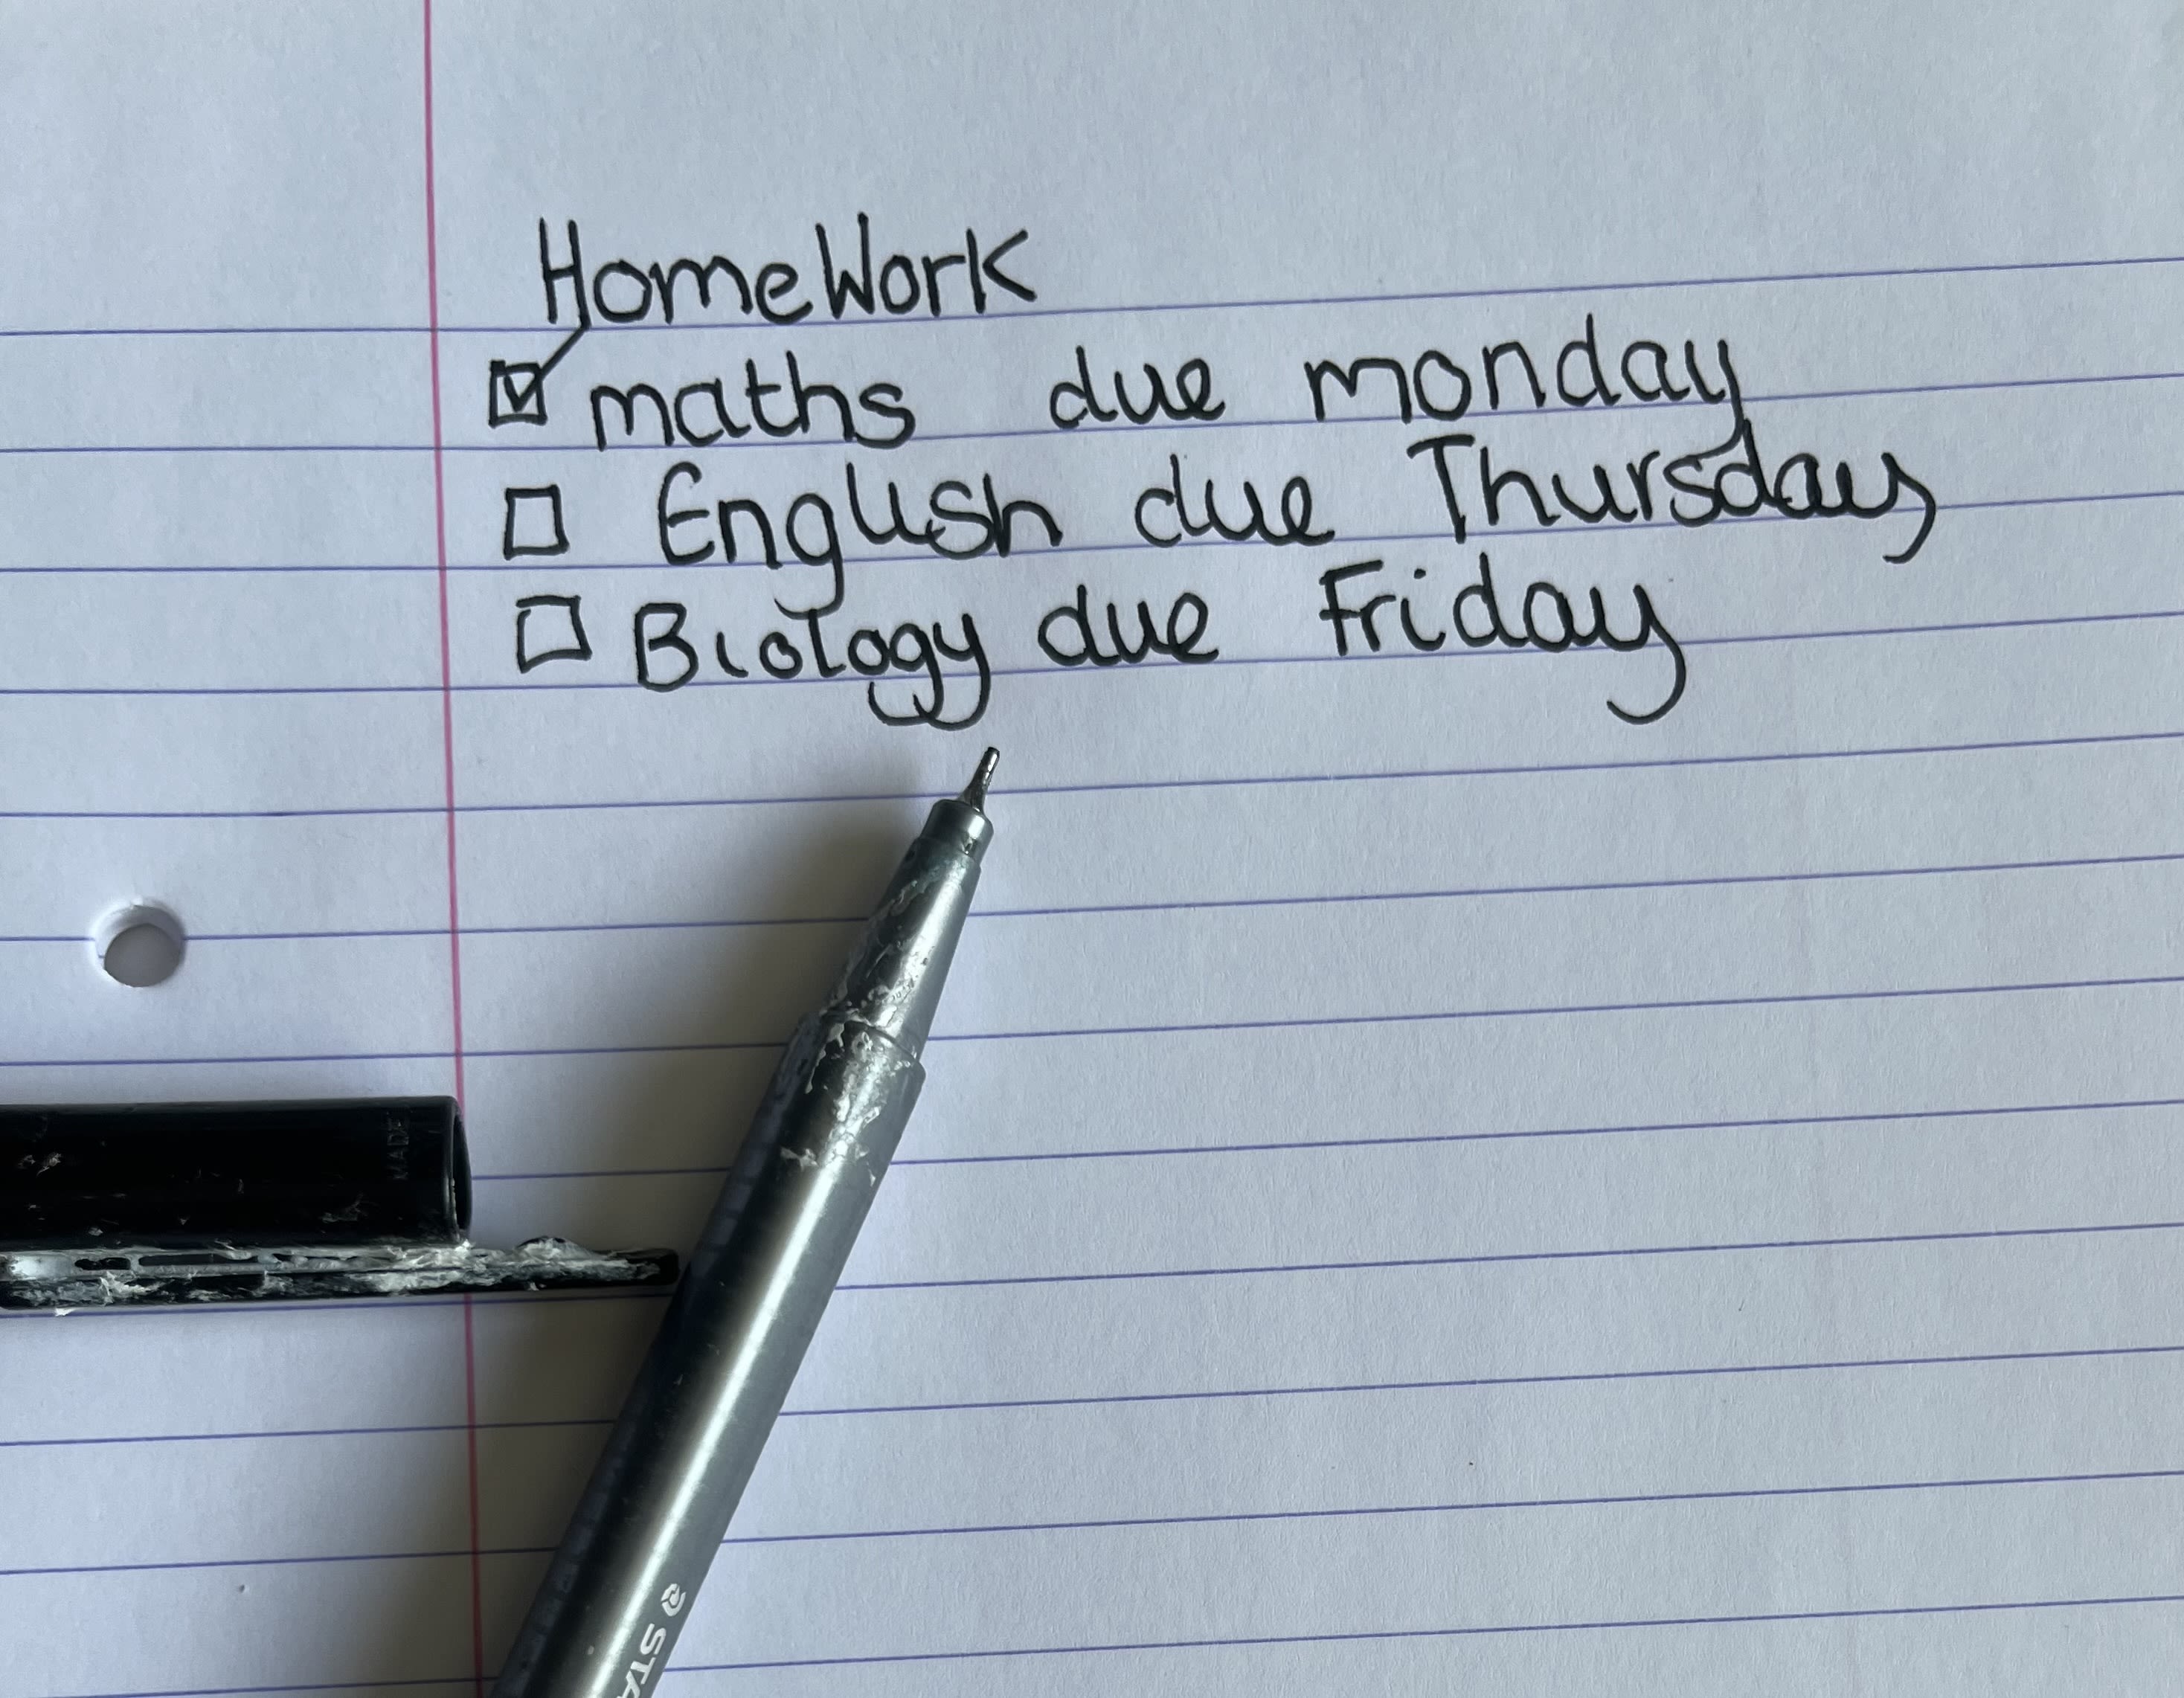 HomeWork
☑ maths due monday
☐ English due Thursday
☐ Biology due Friday
MADE
STA